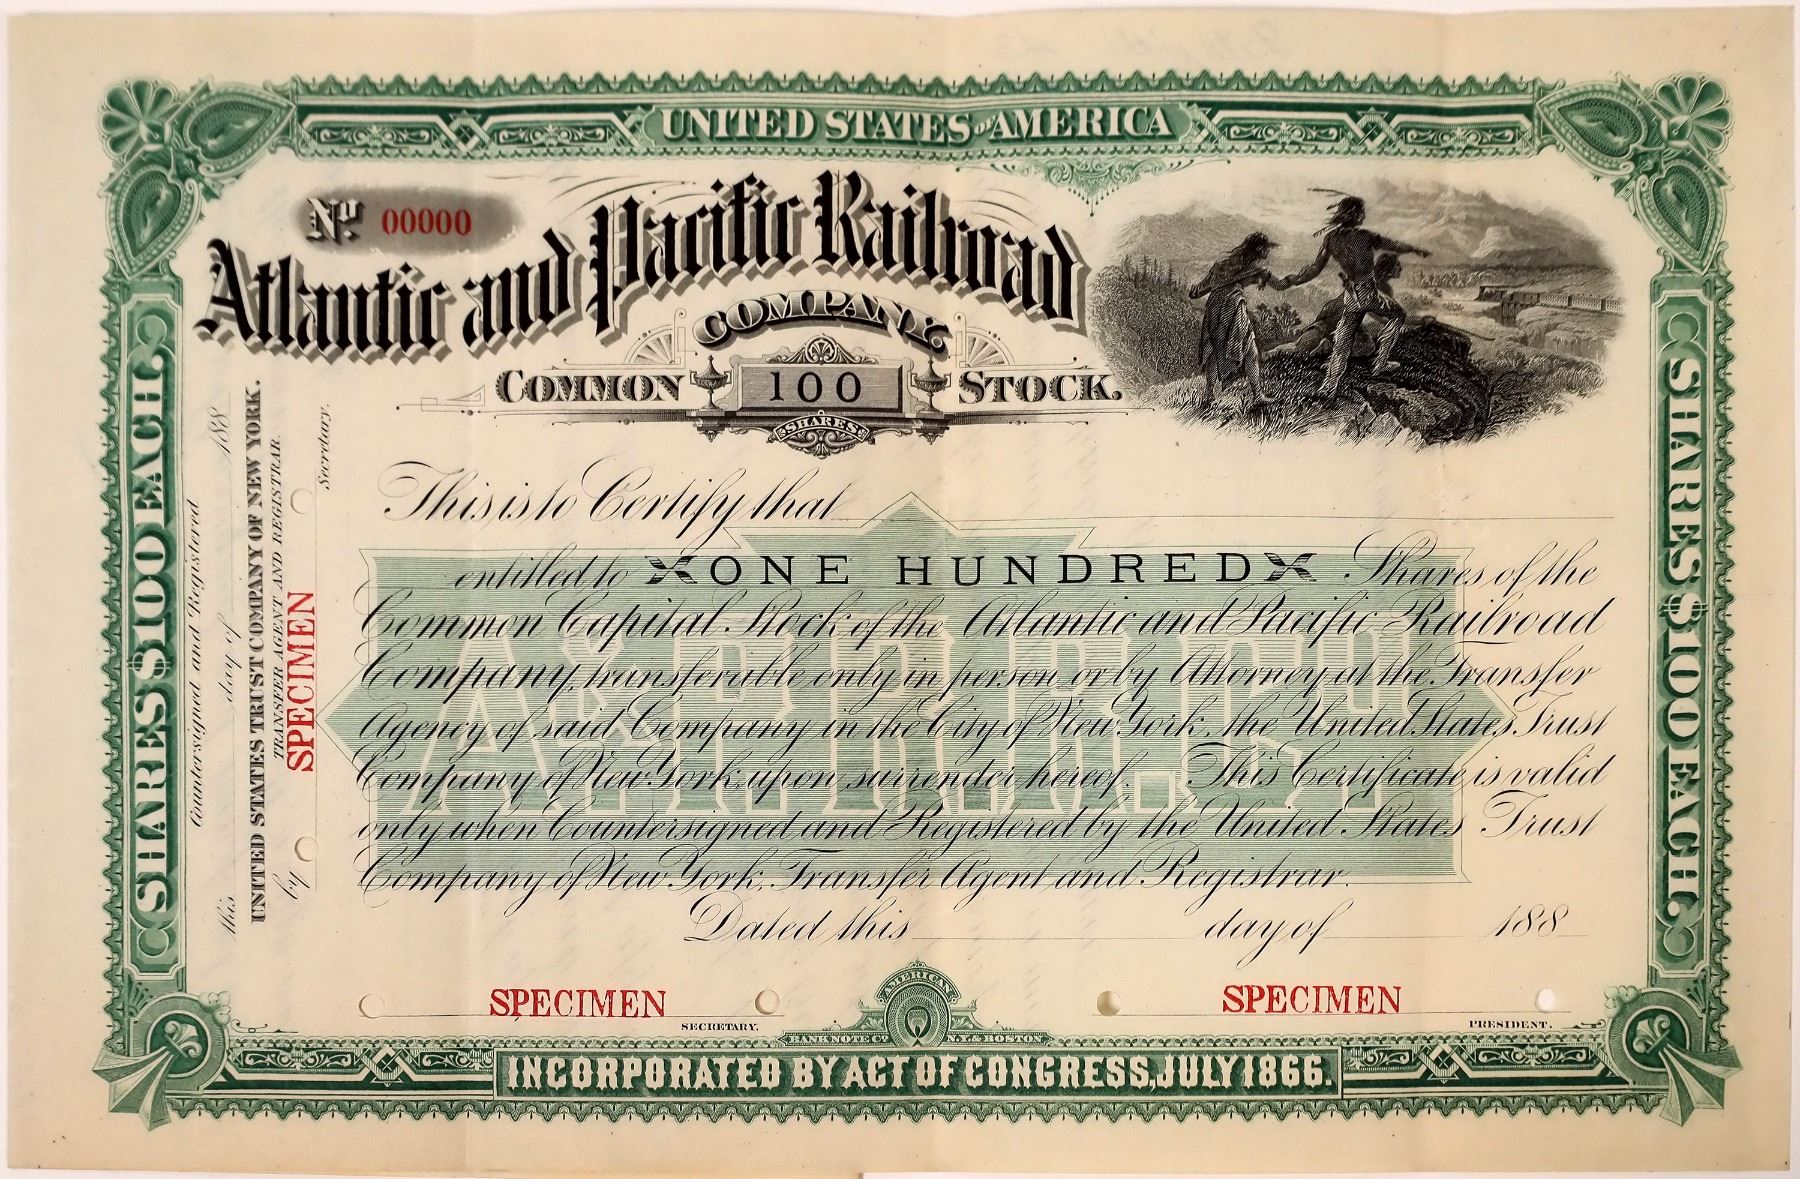 UNITED STATES OF AMERICA
No. 00000
Atlantic and Pacific Railroad
COMPANY.
COMMON 100 STOCK.
SHARES
This is to Certify that
entitled to ONE HUNDRED Shares of the
Common Capital Stock of the Atlantic and Pacific Railroad
Company, transferable only in person or by Attorney at the Transfer
Agency of said Company in the City of New York, the United States Trust
Company of New York, upon surrender hereof. This Certificate is valid
only when Countersigned and Registered by the United States Trust
Company of New York, Transfer Agent and Registrar.
A & P. R.R. Co
Dated this day of 188
SPECIMEN
SECRETARY.
SPECIMEN
PRESIDENT.
AMERICAN
BANK NOTE CO. N.Y. & BOSTON
INCORPORATED BY ACT OF CONGRESS, JULY 1866.
SHARES $100 EACH
Countersigned and Registered
this day of 188
UNITED STATES TRUST COMPANY OF NEW YORK.
TRANSFER AGENT AND REGISTRAR.
SPECIMEN
by Secretary.
SHARES $100 EACH